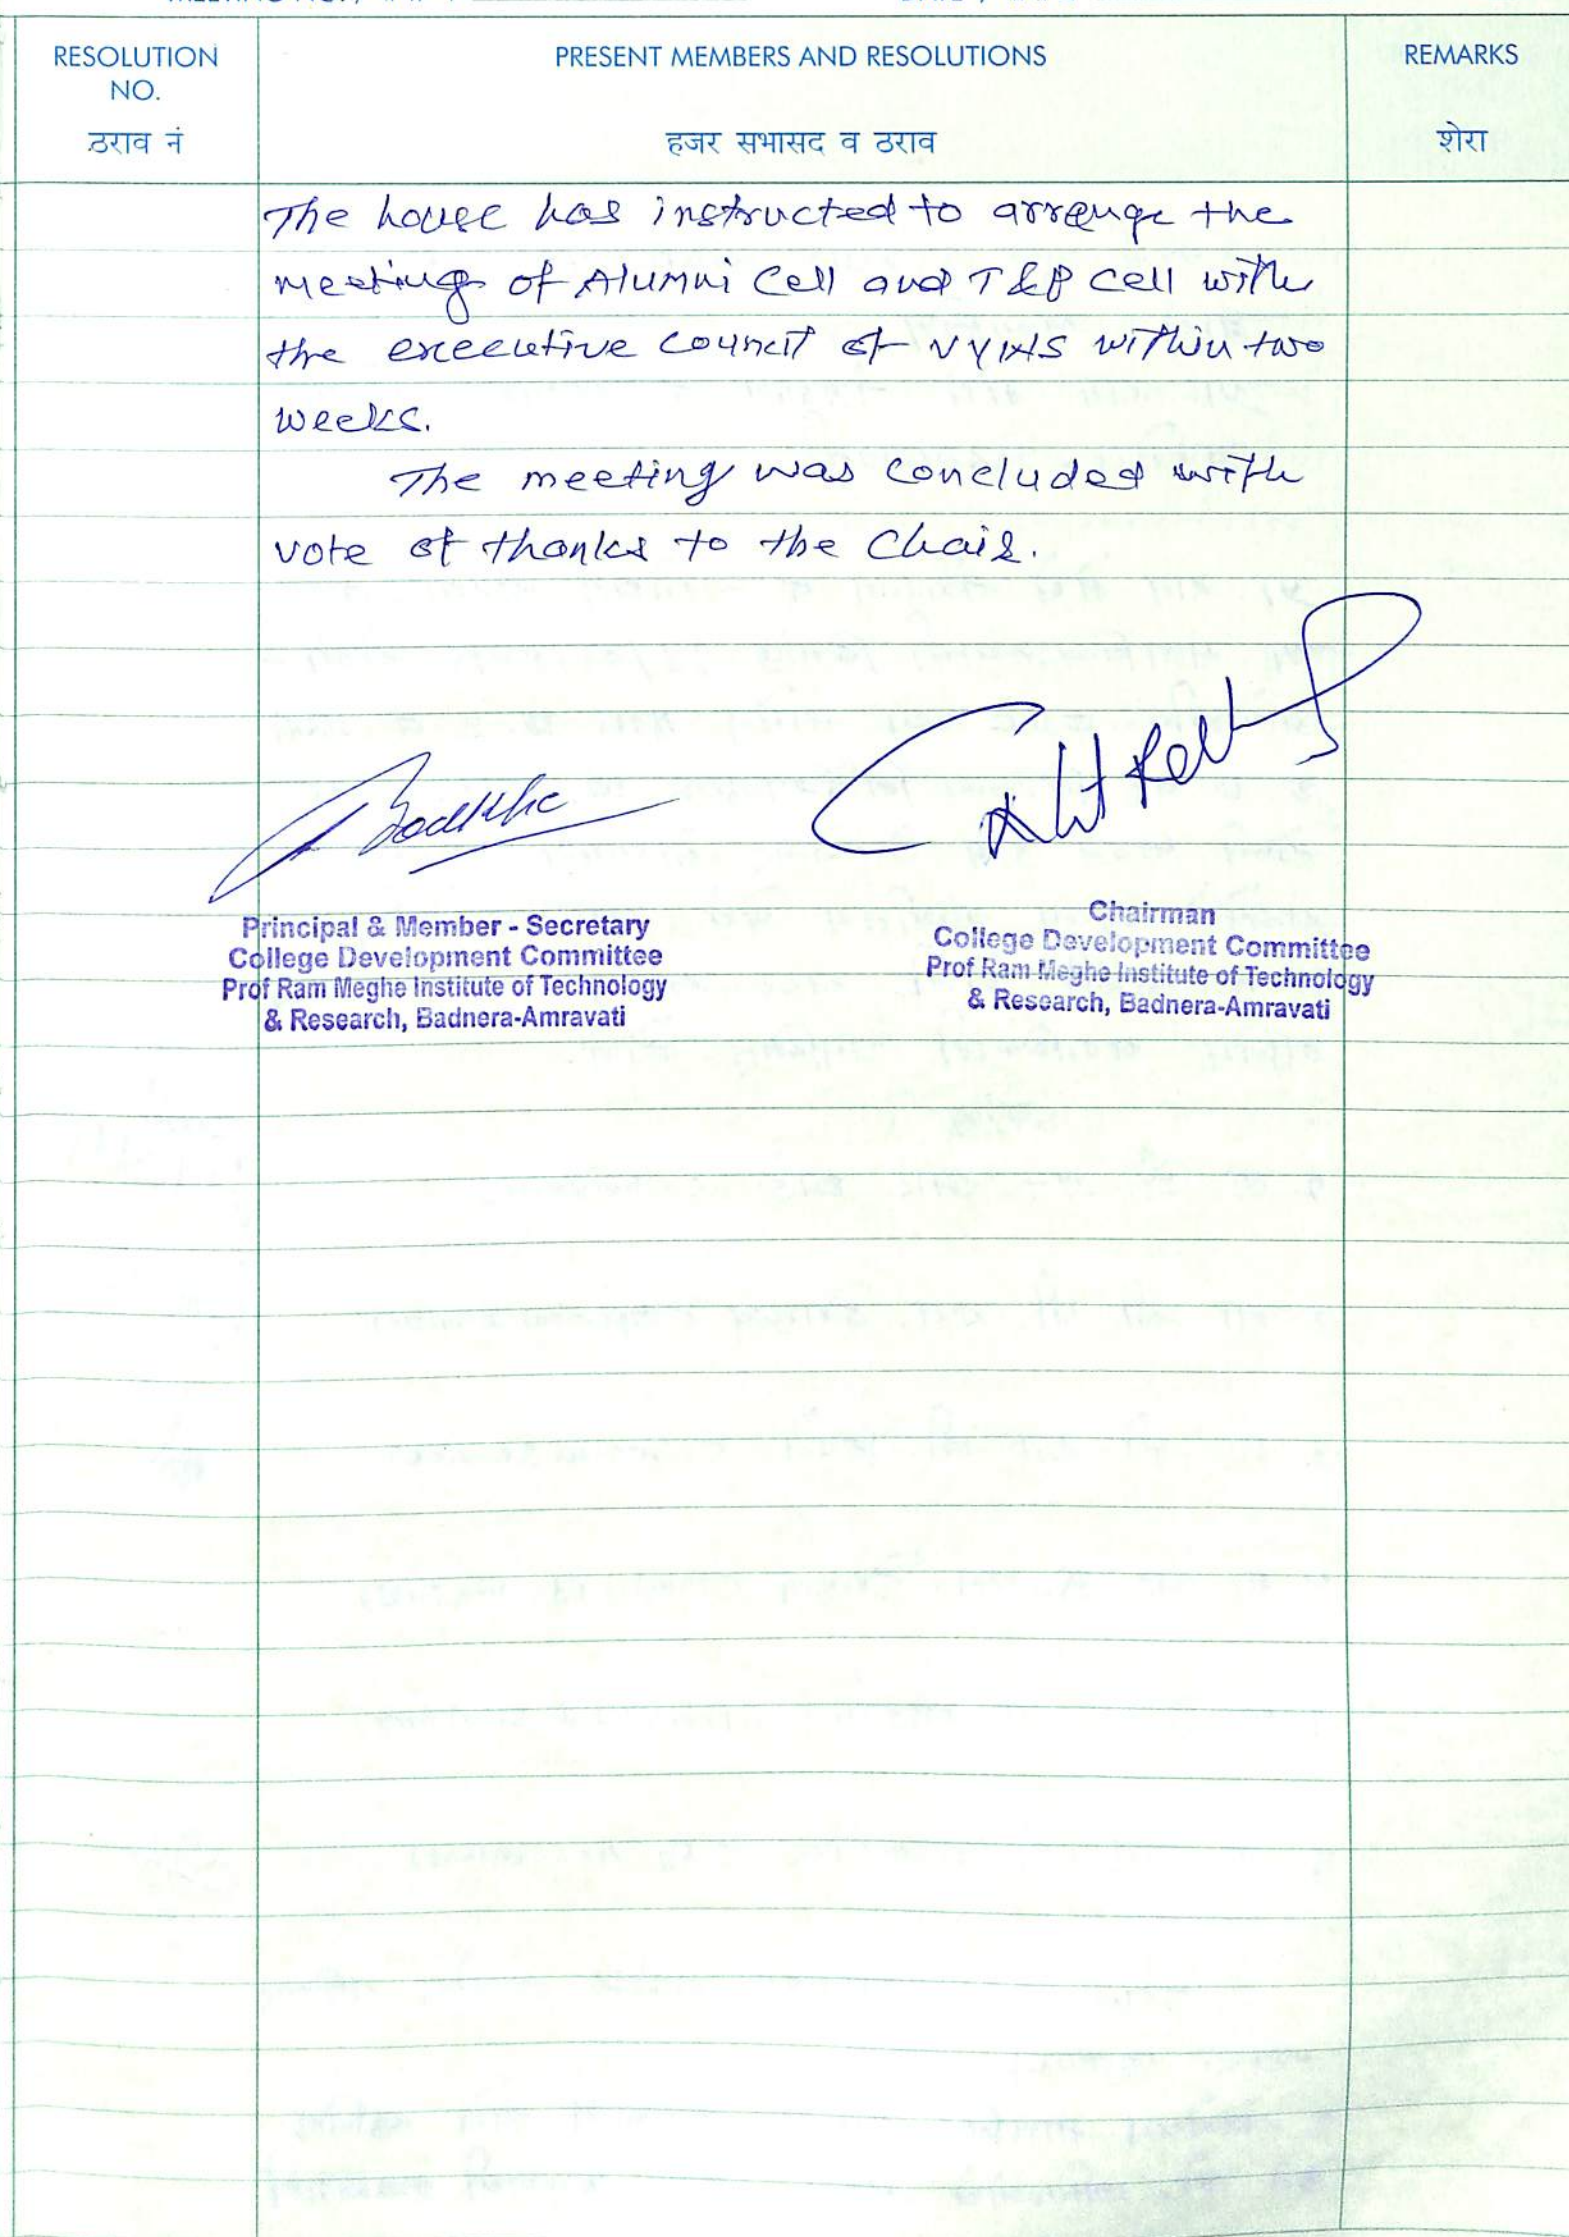 RESOLUTION
NO.
ठराव नं
PRESENT MEMBERS AND RESOLUTIONS
हजर सभासद व ठराव
REMARKS
शेरा
The house has instructed to arrange the
meeting of Alumni Cell and T&P Cell with
the executive council of VYWS within two
weeks.
The meeting was concluded with
vote of thanks to the Chair.
Principal & Member - Secretary
College Development Committee
Prof Ram Meghe Institute of Technology
& Research, Badnera-Amravati
Chairman
College Development Committee
Prof Ram Meghe Institute of Technology
& Research, Badnera-Amravati